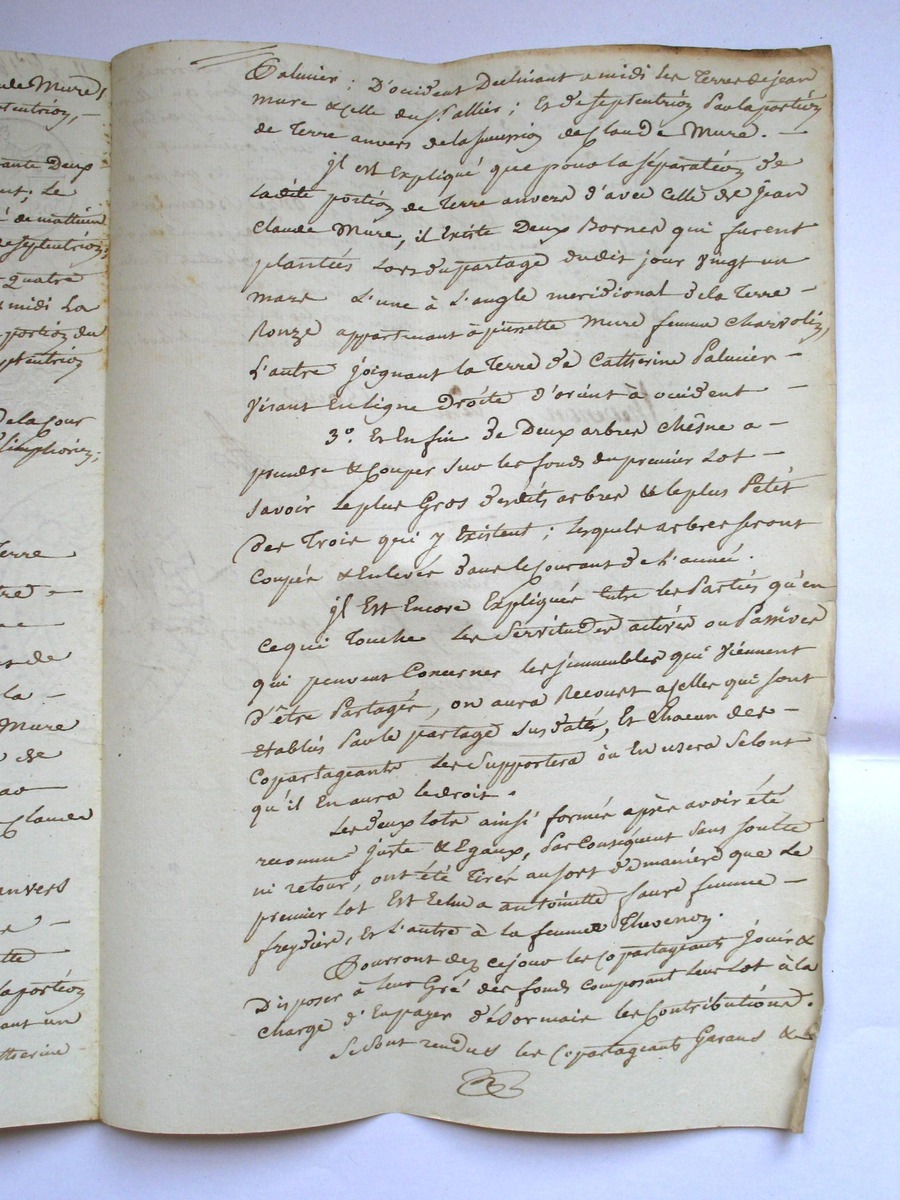 de Mure,
ptentrion, -
ante Deux
ent; Le
é de mathieu
septentrion;
- quatre
midi La
portion du
ptentrion
De la Cour
Simphorien;
Terre
tre -
nt de
la -
Mure
de
Claude
anvers
tte
la portion
ant un
atherine
Palmier; D'occident Declinant a midi les Terres de jean
Mure & Celle du Sr. Pallier; Et de septentrion Par la portion
de Terre anvers de la succession de Claude Mure. -
jl est Expliqué que pour la séparation de
ladite portion de Terre anvers d'avec Celle de Jean
Claude Mure, il Existe Deux Bornes qui furent
plantées Lors du partage dudit jour vingt un
mars L'une à L'angle meridional de la Terre -
Ronze appartenant à pierrette Mure femme Charvolin,
L'autre joignant la Terre de Catherine Palmier -
visant En ligne Droite d'orient à occident -
3°. Et Enfin de Deux arbres Chêsne a -
prendre & Couper sur les fonds du premier Lot -
savoir Le plus Gros desdits arbres & le plus Petit
Des Trois qui y Existent; lesquels arbres seront
Coupés & Enlevés dans le Courant de L'année.
jl Est Encore Expliqués Entre les Parties qu'en
Ce qui Touche Les Servitudes actives ou Passives
qui peuvent Concerner les jmmeubles qui viennent
D'être Partagés, on aura Recourt a Celles qui sont
établis Par le partage Susdaté, Et Chacun des -
Copartageants Les Supportera ou En usera Selont
qu'il En aura le droit.
Les deux lots ainsi formés après avoir été
reconnus juste & Egaux, Par Conséquent Sans soulte
ni retour, ont été Tirés au sort de manière que Le
premier Lot Est Echu a antoinette faure femme -
freydier, Et L'autre à la femme Thevenon.
Pourront dez ce jour les Copartageants Jouir &
Disposer à leur Gré des fonds Composant leur Lot à la
Charge d'En payer d'ésormais les Contributions.
Se Sont rendus les Copartageants Garans &